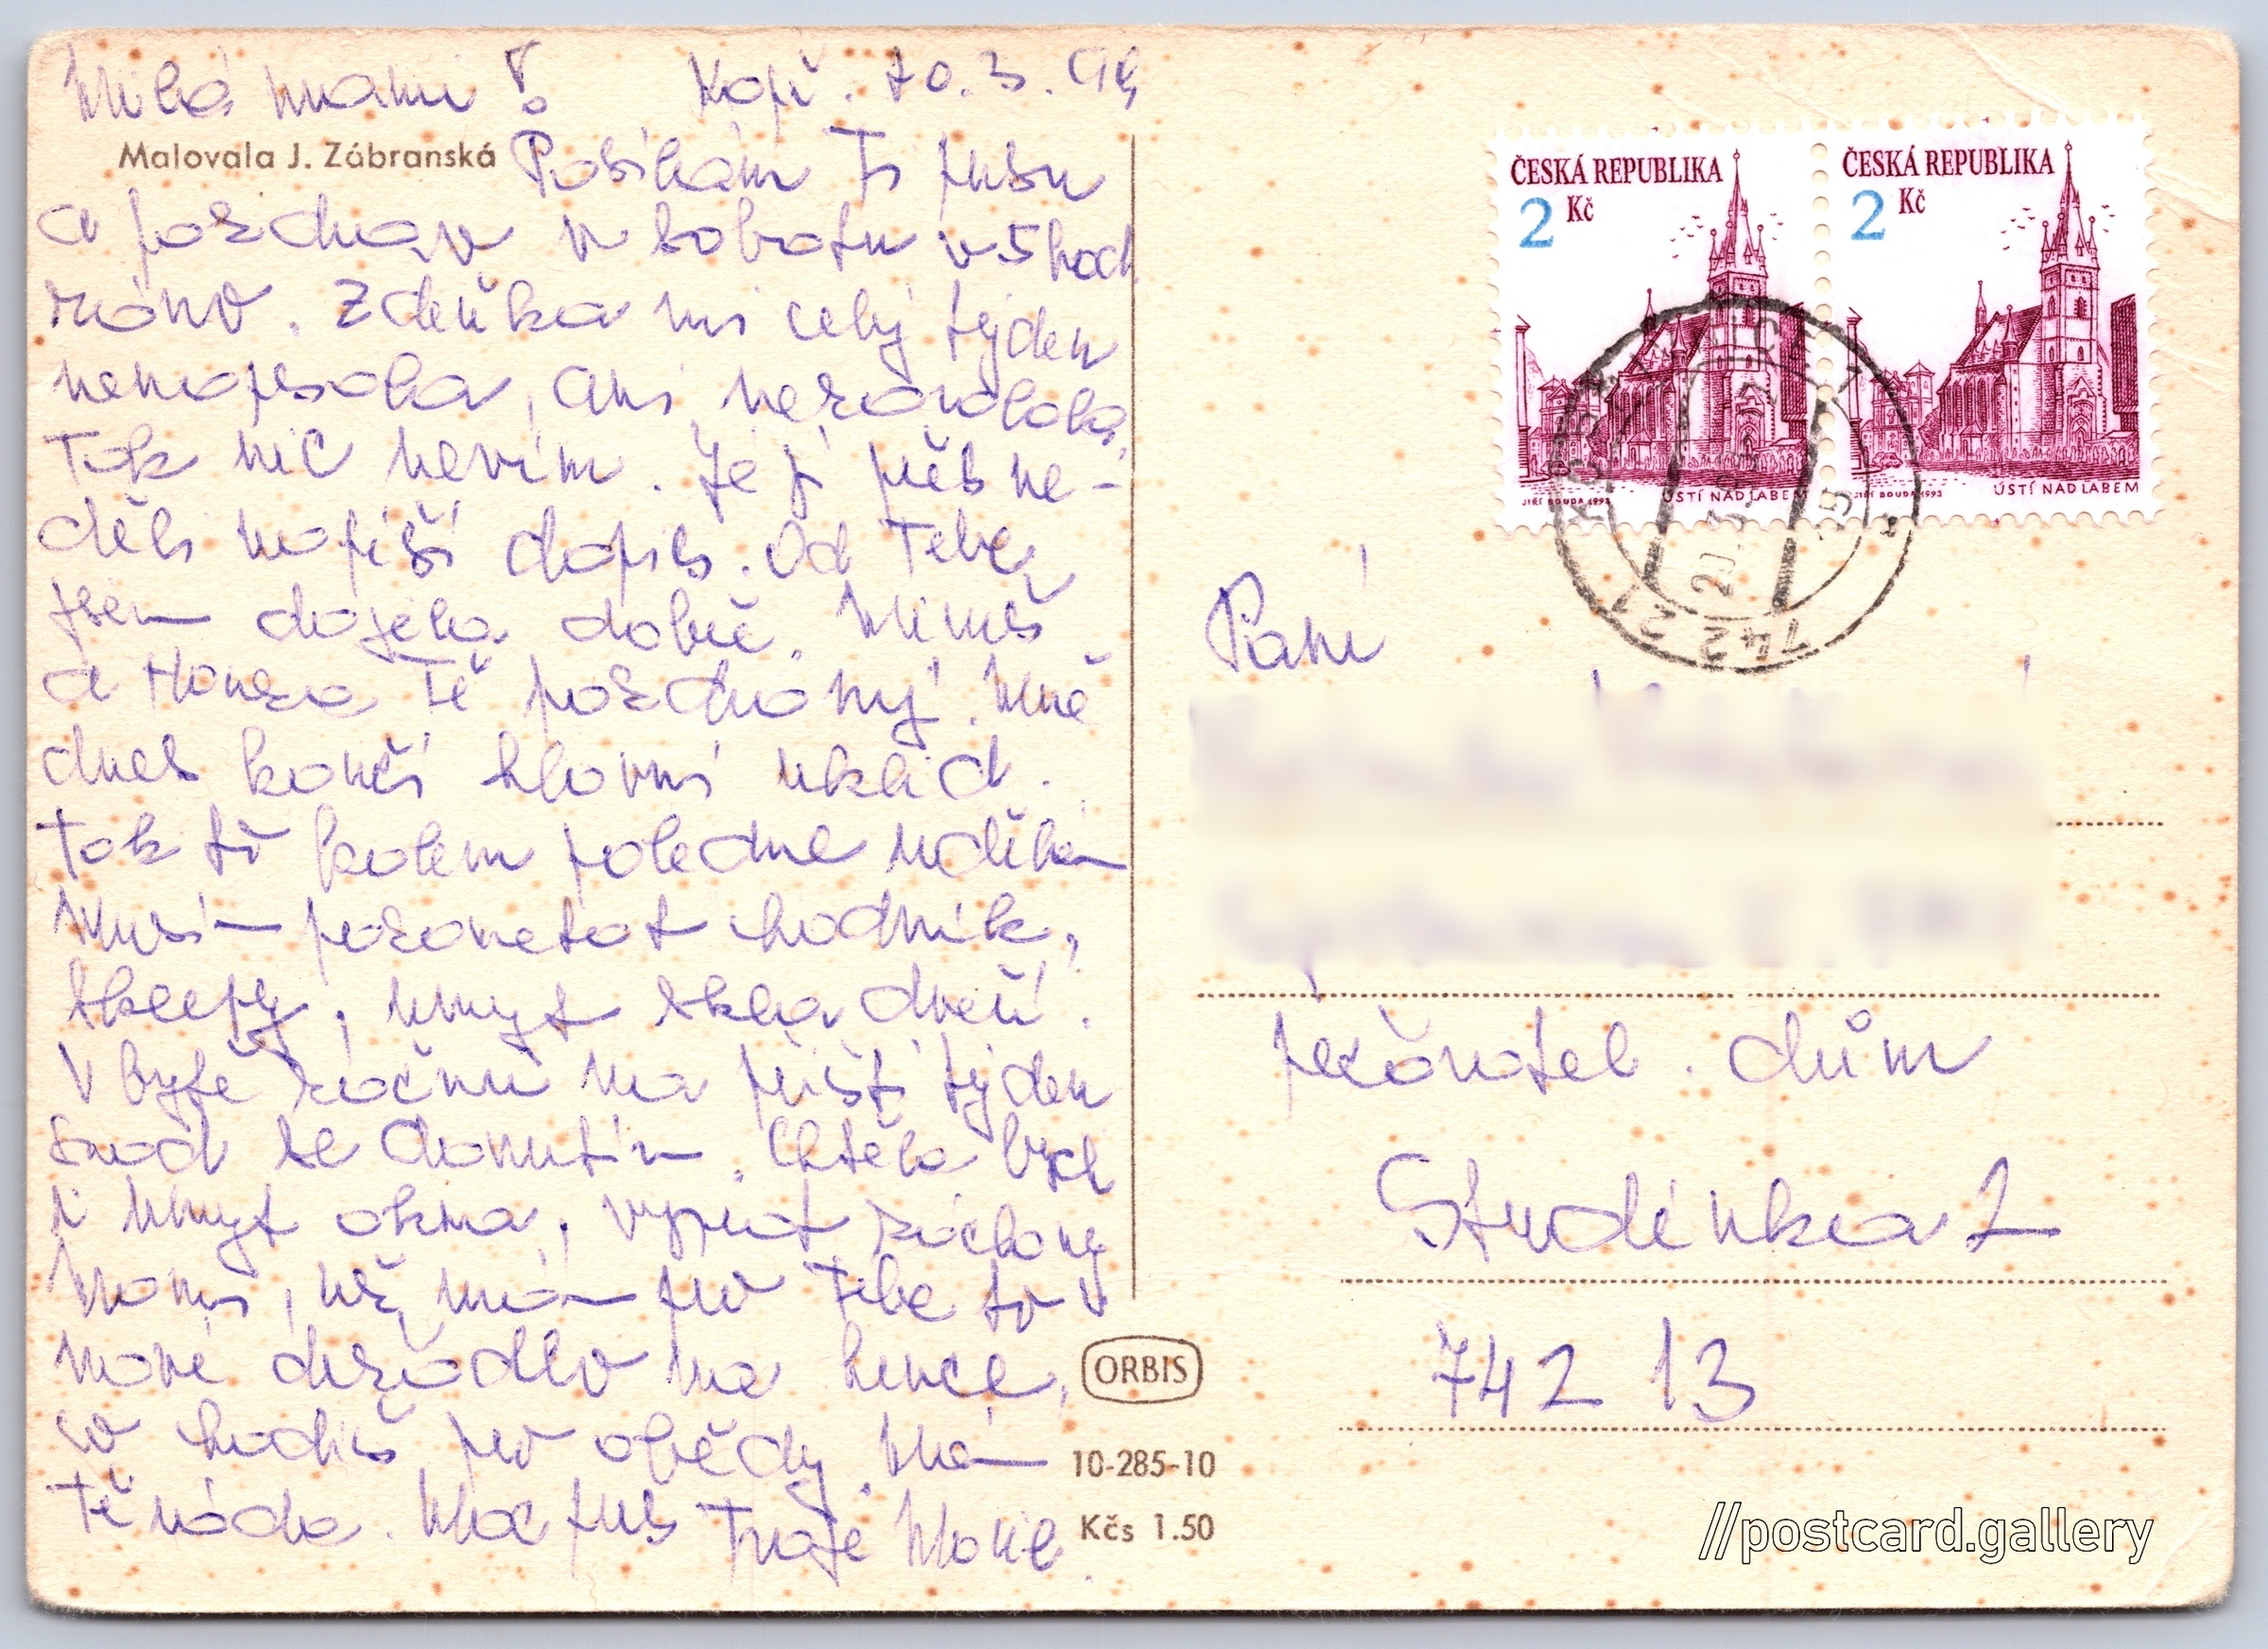 Milá mami! Kopř. 20.3.94
Malovala J. Zábranská
Posílám Ti pusu
a pozdrav v sobotu v 5 hod
ráno. Zdeňka mi celý týden
nenapsala, ani nezavolala,
Tak nic nevím. Je jí přes ne-
děli napíši dopis. Od Tebe
jsem dojela dobře. Miluš
a Honza Tě pozdravují. Mně
dnes končí hlavní uklid.
Tak to kolem poledne udělám
Musím pozametat chodník,
sklepy, umyt skla dveří.
V bytě začnu na příšt týden
snad se donutím. Chtěla bych
i umyt okna, vyprat záclony
Mami, už mám pro Tebe to
nové držadlo na hence,
co chodíš pro obědy. Mám
Tě ráda. Moc pus Tvoje Marie
ORBIS
10-285-10
Kčs 1.50
ČESKÁ REPUBLIKA
2 Kč
JIŘÍ BOUDA 1993
ÚSTÍ NAD LABEM
ČESKÁ REPUBLIKA
2 Kč
JIŘÍ BOUDA 1993
ÚSTÍ NAD LABEM
742 21
Paní
pečovatel. dům
Studénka 2
742 13
//postcard.gallery